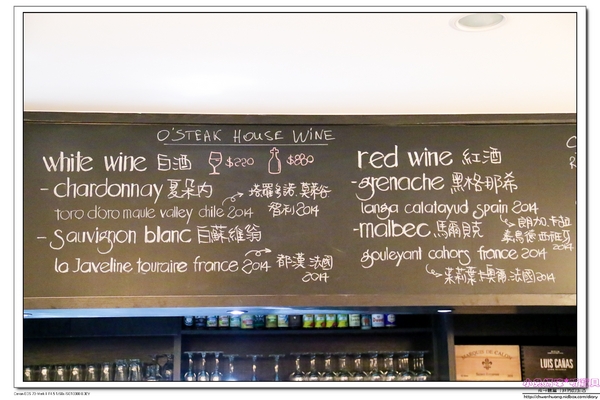 O'STEAK HOUSE WINE
white wine 白酒 $220 $880
- chardonnay 夏朵內
toro d'oro maule valley chile 2014
塔羅多諾 莫萊谷
智利 2014
- sauvignon blanc 白蘇維翁
la Javeline touraine france 2014
都漢 法國
2014
red wine 紅酒
- grenache 黑格那希
langa calatayud spain 2014
朗加 卡拉
2014
- malbec 馬爾貝克
gouleyant cahors france 2014
法國 2014
LUIS CAÑAS